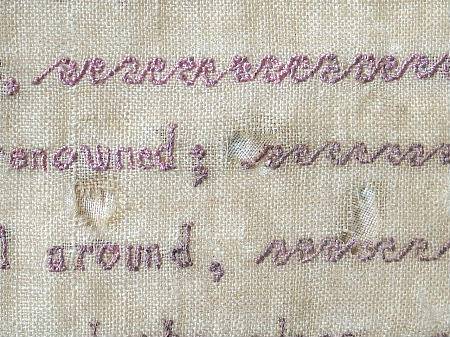 ,
renowned;
l around,